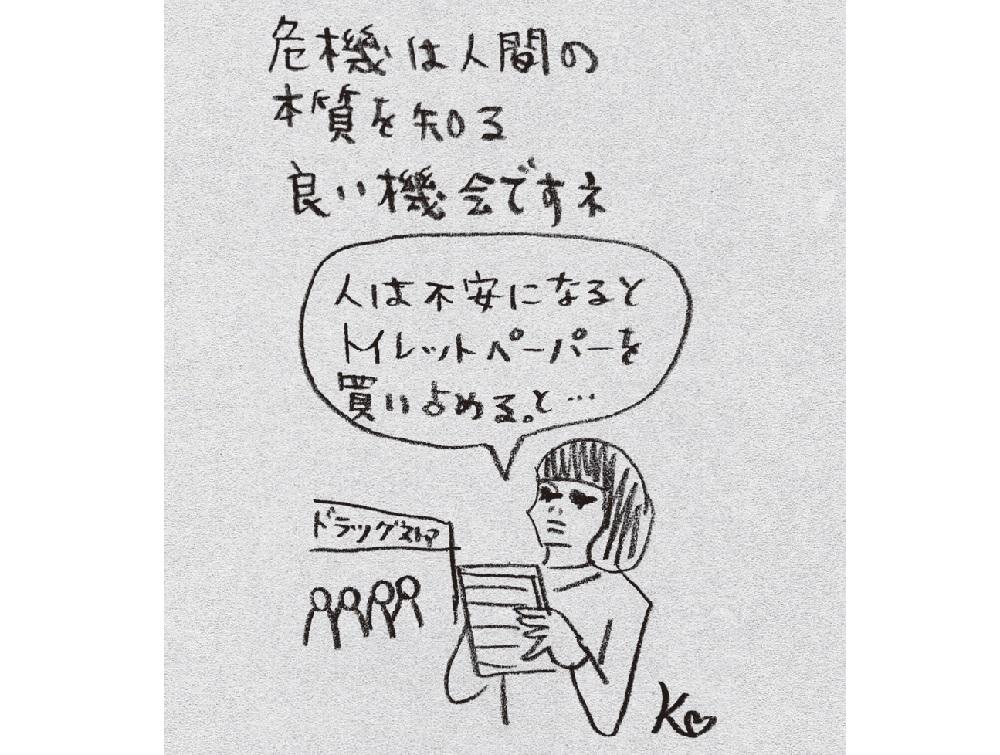 危機は人間の
本質を知る
良い機会ですネ
人は不安になると
トイレットペーパーを
買い占める。と…
ドラッグストア
K